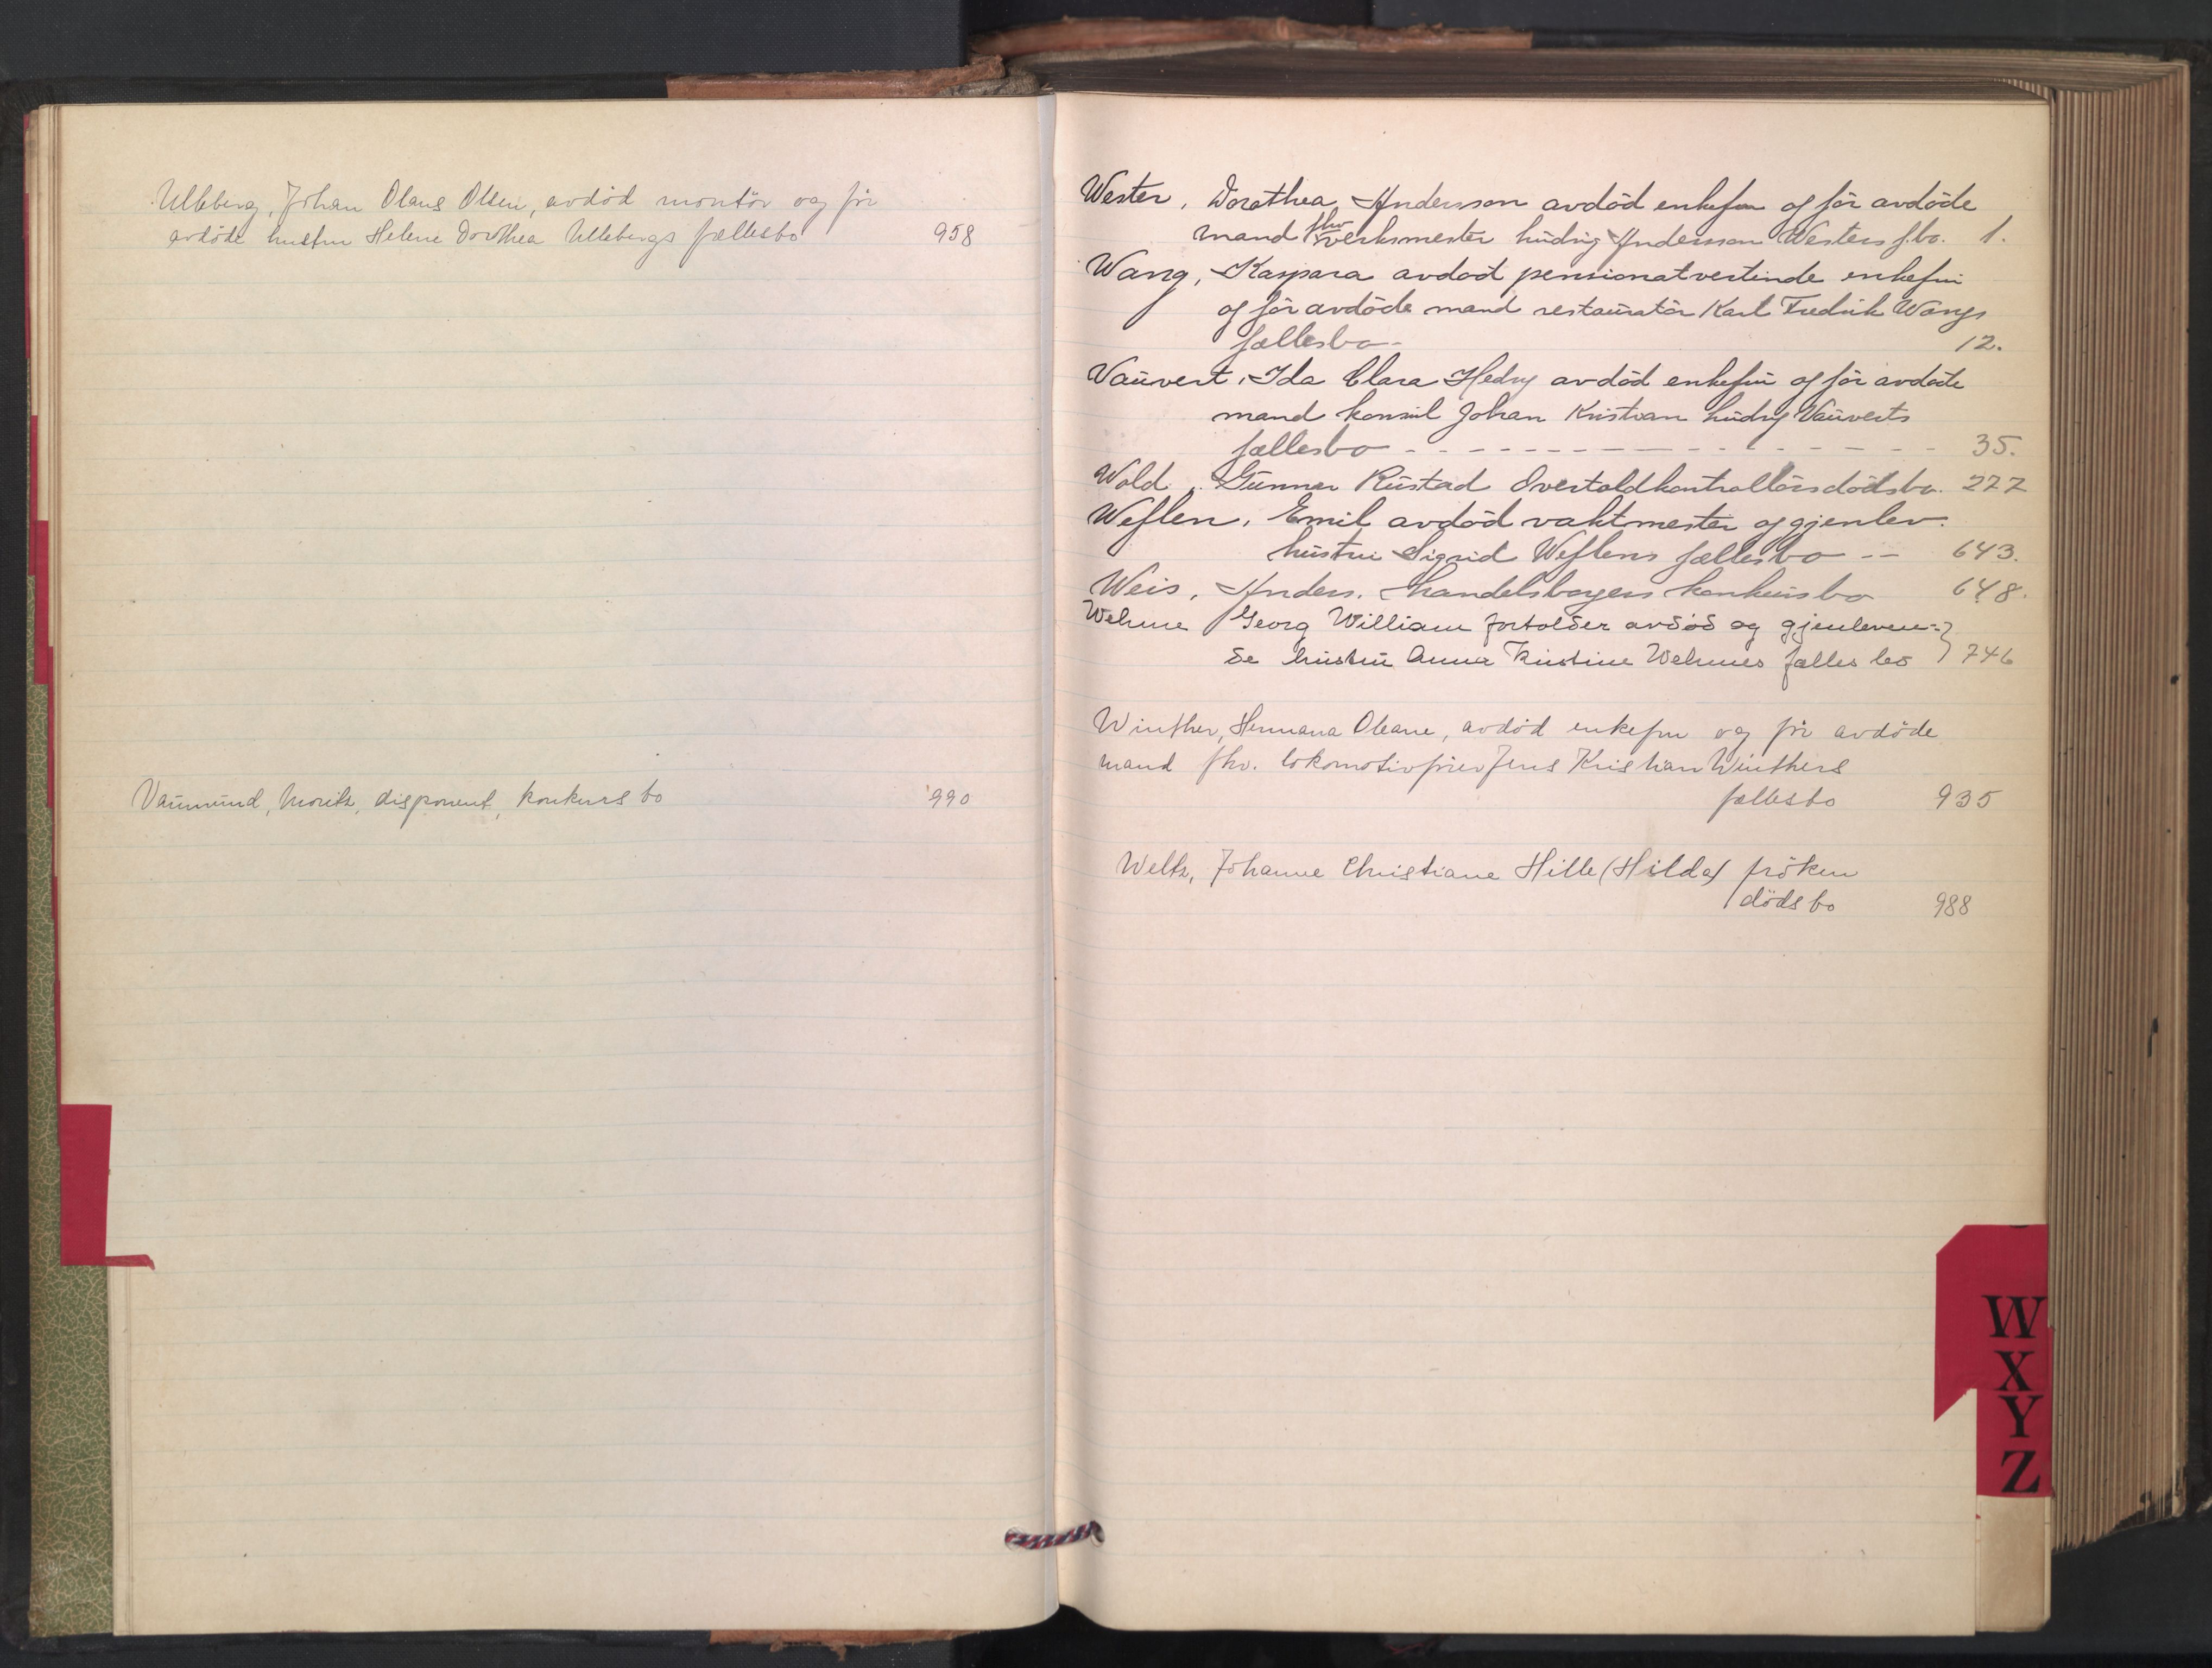 Ulleberg, Johan Olaus Olsen, avdöd montör og för
avdöde hustru Helene Dorthea Ullebergs fællesbo 958
Vaumund, Moritz, disponent, konkursbo 990
Wester, Dorothea Andersson avdöd enkefru og för avdöde
mand fhv. verksmester Ludvig Andersson Westers f.bo. 1.
Wang, Kaspara avdöd pensionatvertinde enkefru
og för avdöde mand restauratör Karl Fredrik Wangs
fællesbo - 12.
Vauvert, Ida Clara Hedvig avdöd enkefru og för avdöde
mand konsul Johan Kristian Ludvig Vauverts
fællesbo - - - - - - - - - - - - - - - 35.
Wold, Gunnar Rustad Overtoldkontrollörs dödsbo. 277
Weflen, Emil avdöd vaktmester og gjenlev.
hustru Sigrid Weflens fællesbo -- 643.
Weis, Anders. handelsborgers konkursbo 648.
Wehme Georg William fortolder avdöd og gjenleven=
de hustru Anna Kristine Wehmes fælles bo } 746
Winther, Hermana Oleane, avdöd enkefru og för avdöde
mand fhv. lokomotivförer Jens Kristian Winthers
fællesbo 935
Weltz, Johanne Christiane Hille (Hilda) fröken
dödsbo 988
W
X
Y
Z